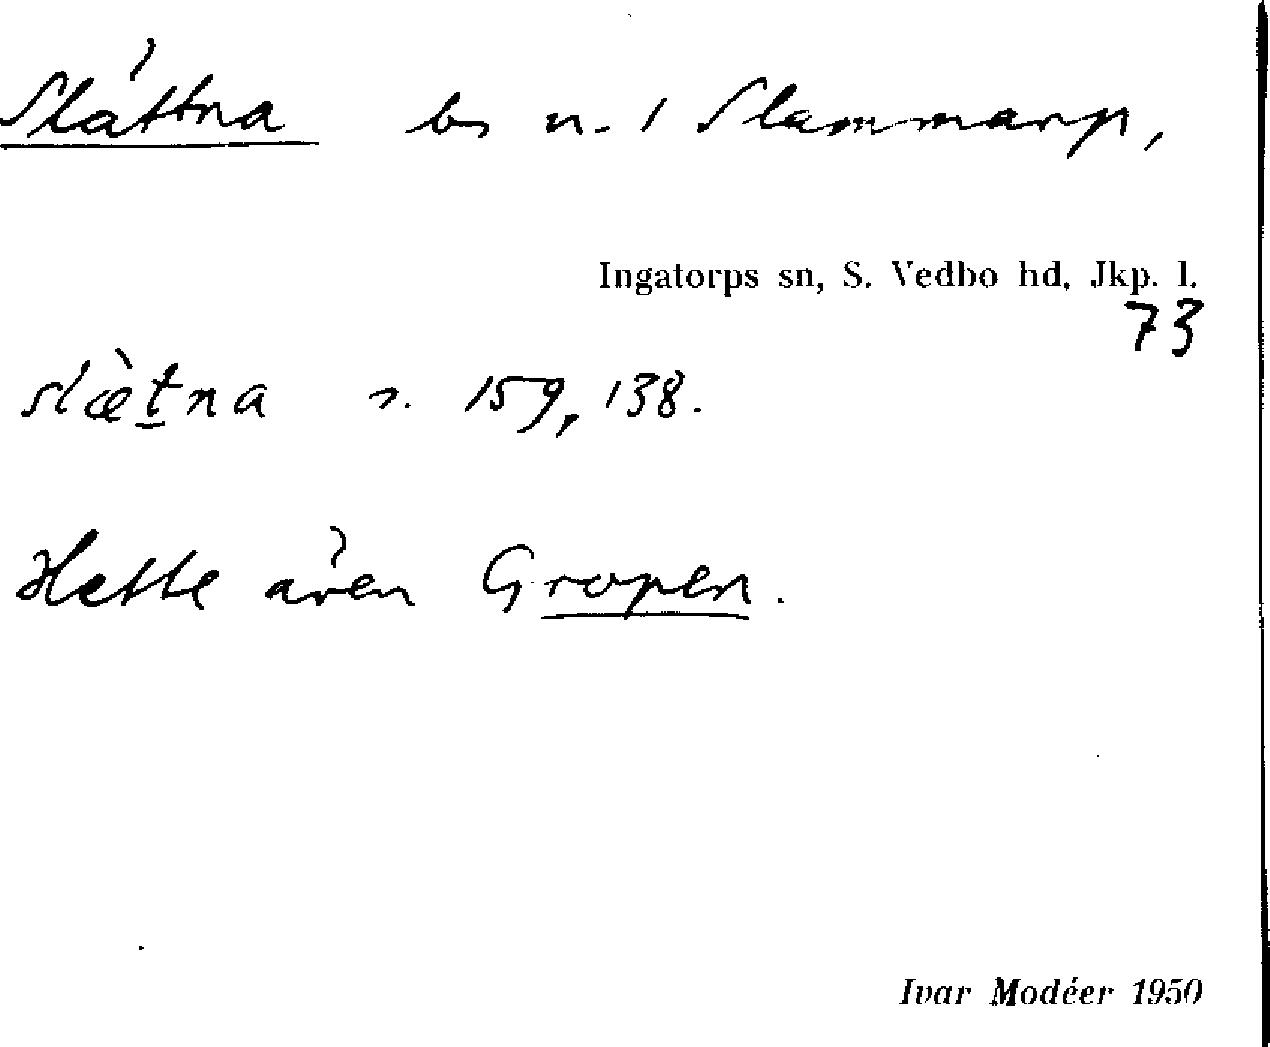 Slättna bs n. 1 Slammarp,
Ingatorps sn, S. Vedbo hd, Jkp. l.
73
slæ̀t̠na s. 159, 138.
Hette även Gropen.
Ivar Modéer 1950